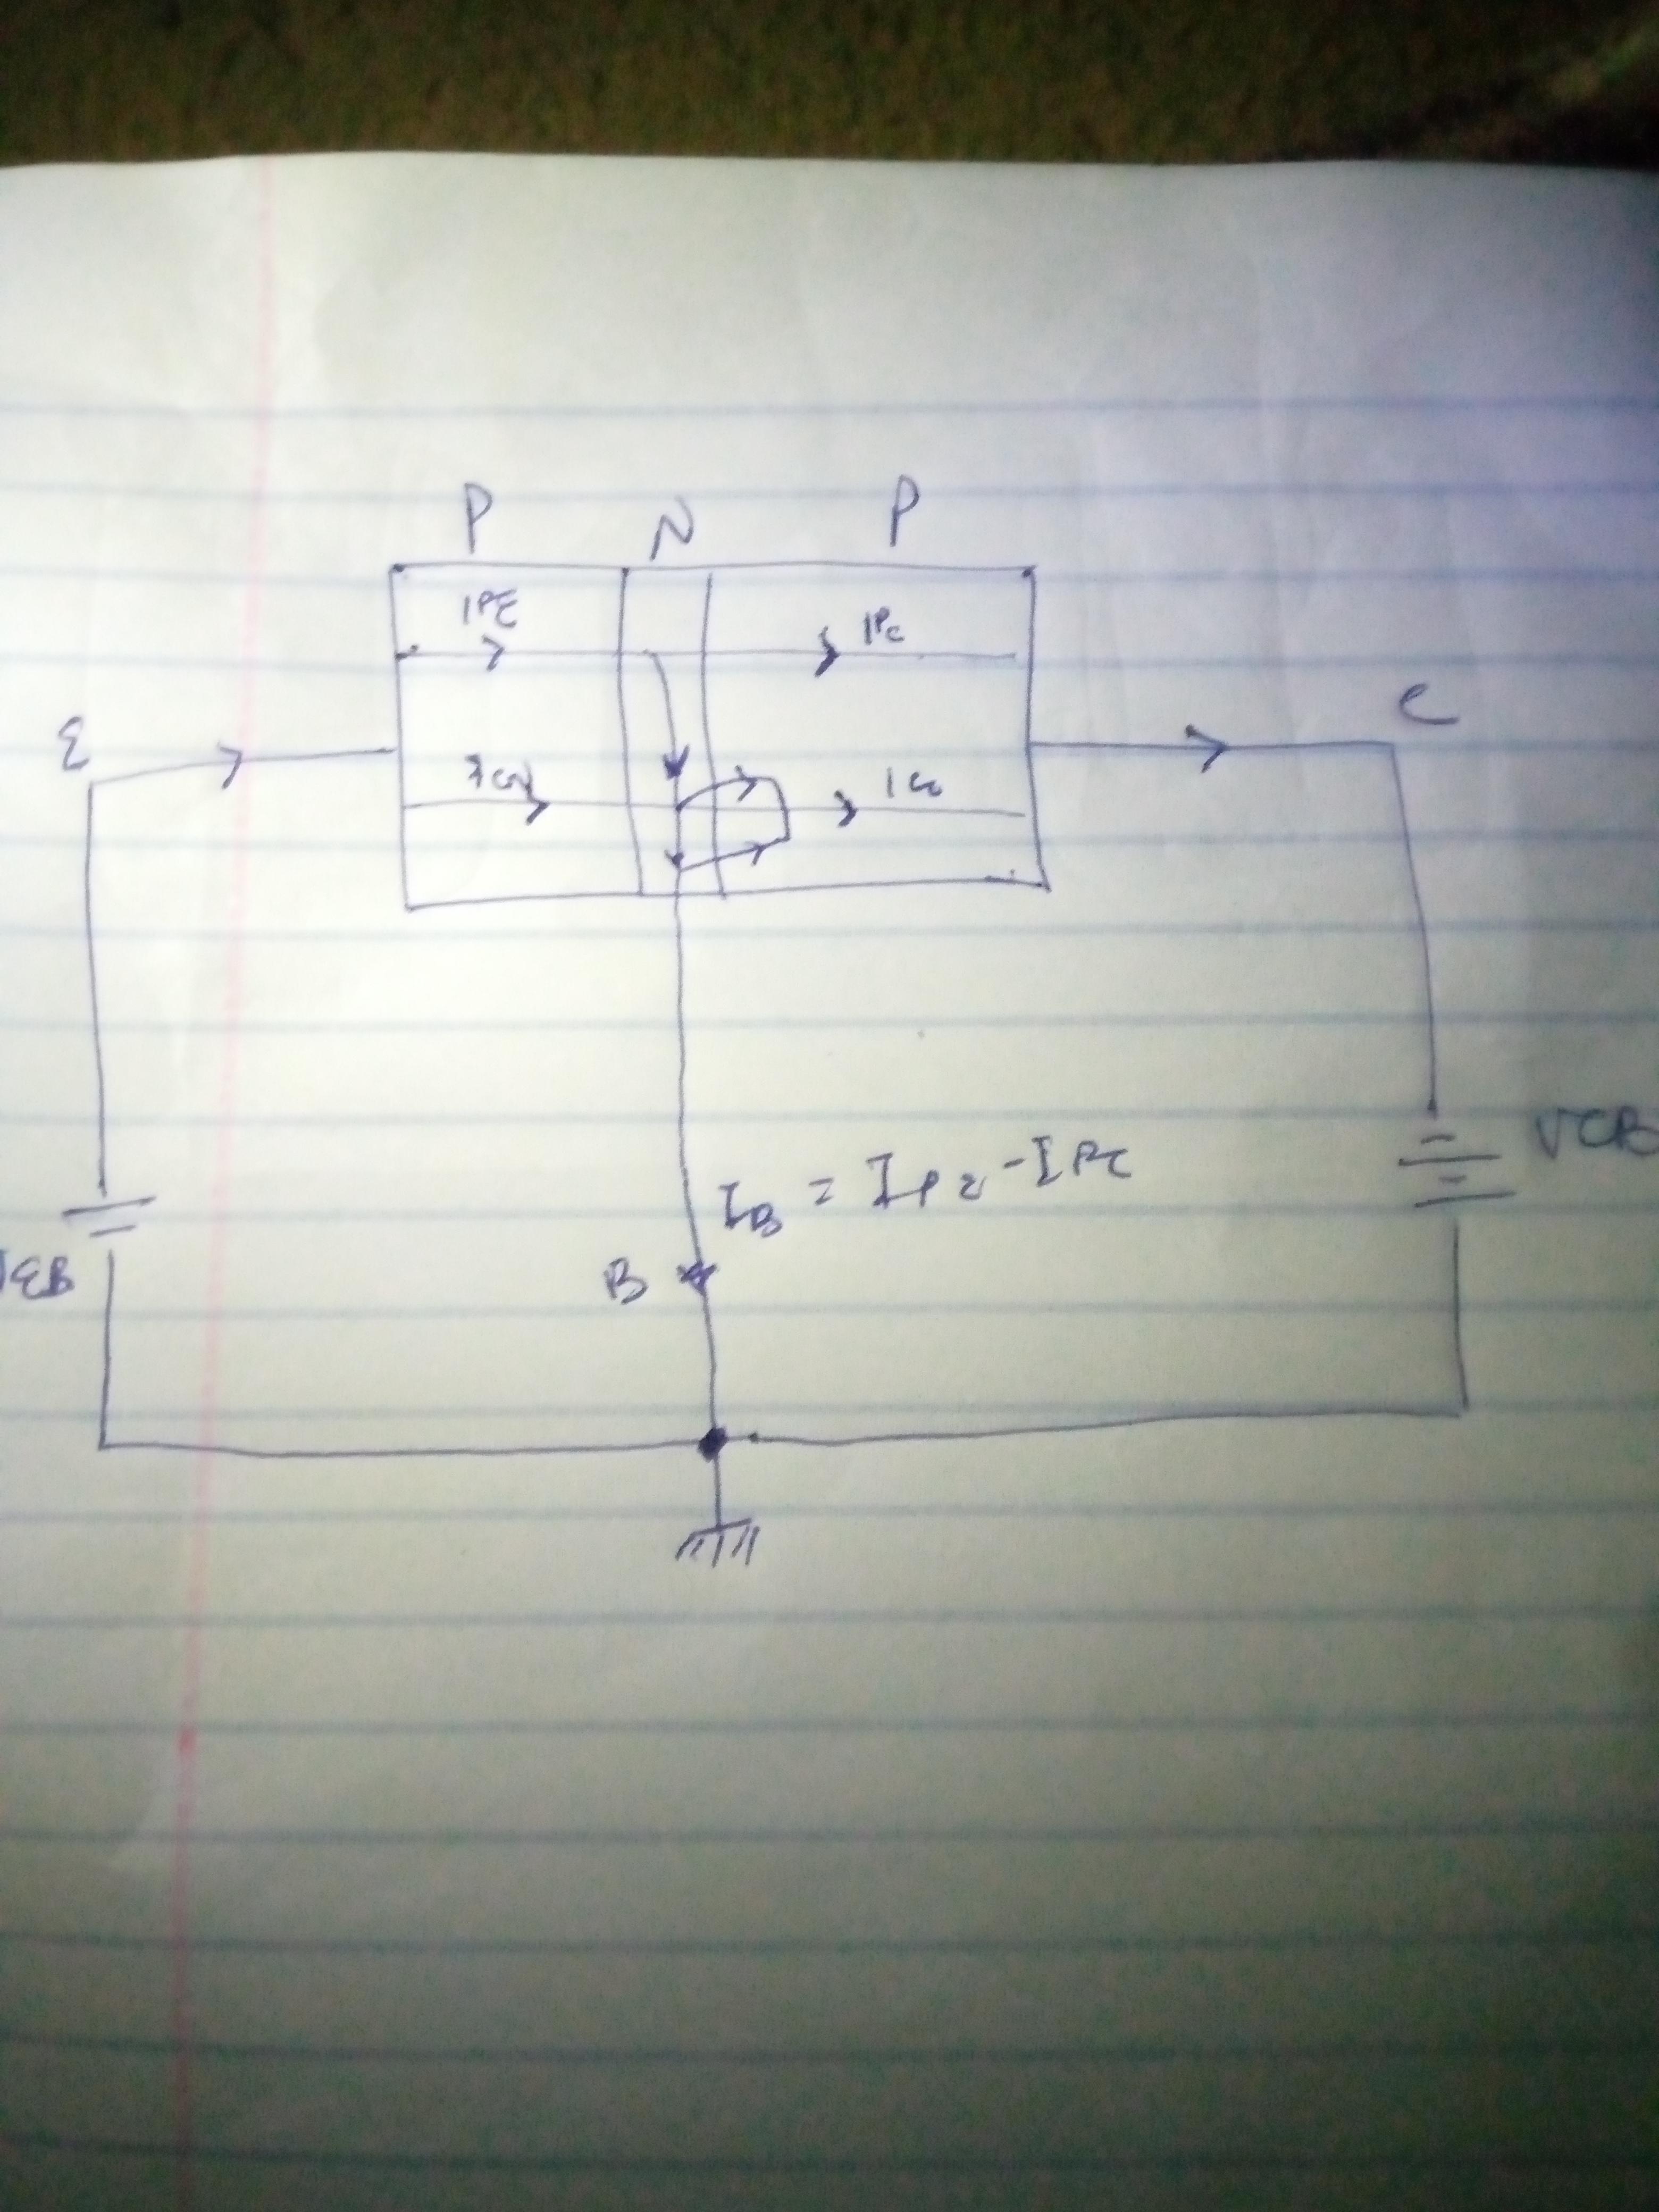 P N P
IPE IPC
E C
ICO
VCB
IB = IPE - IPC
VEB B